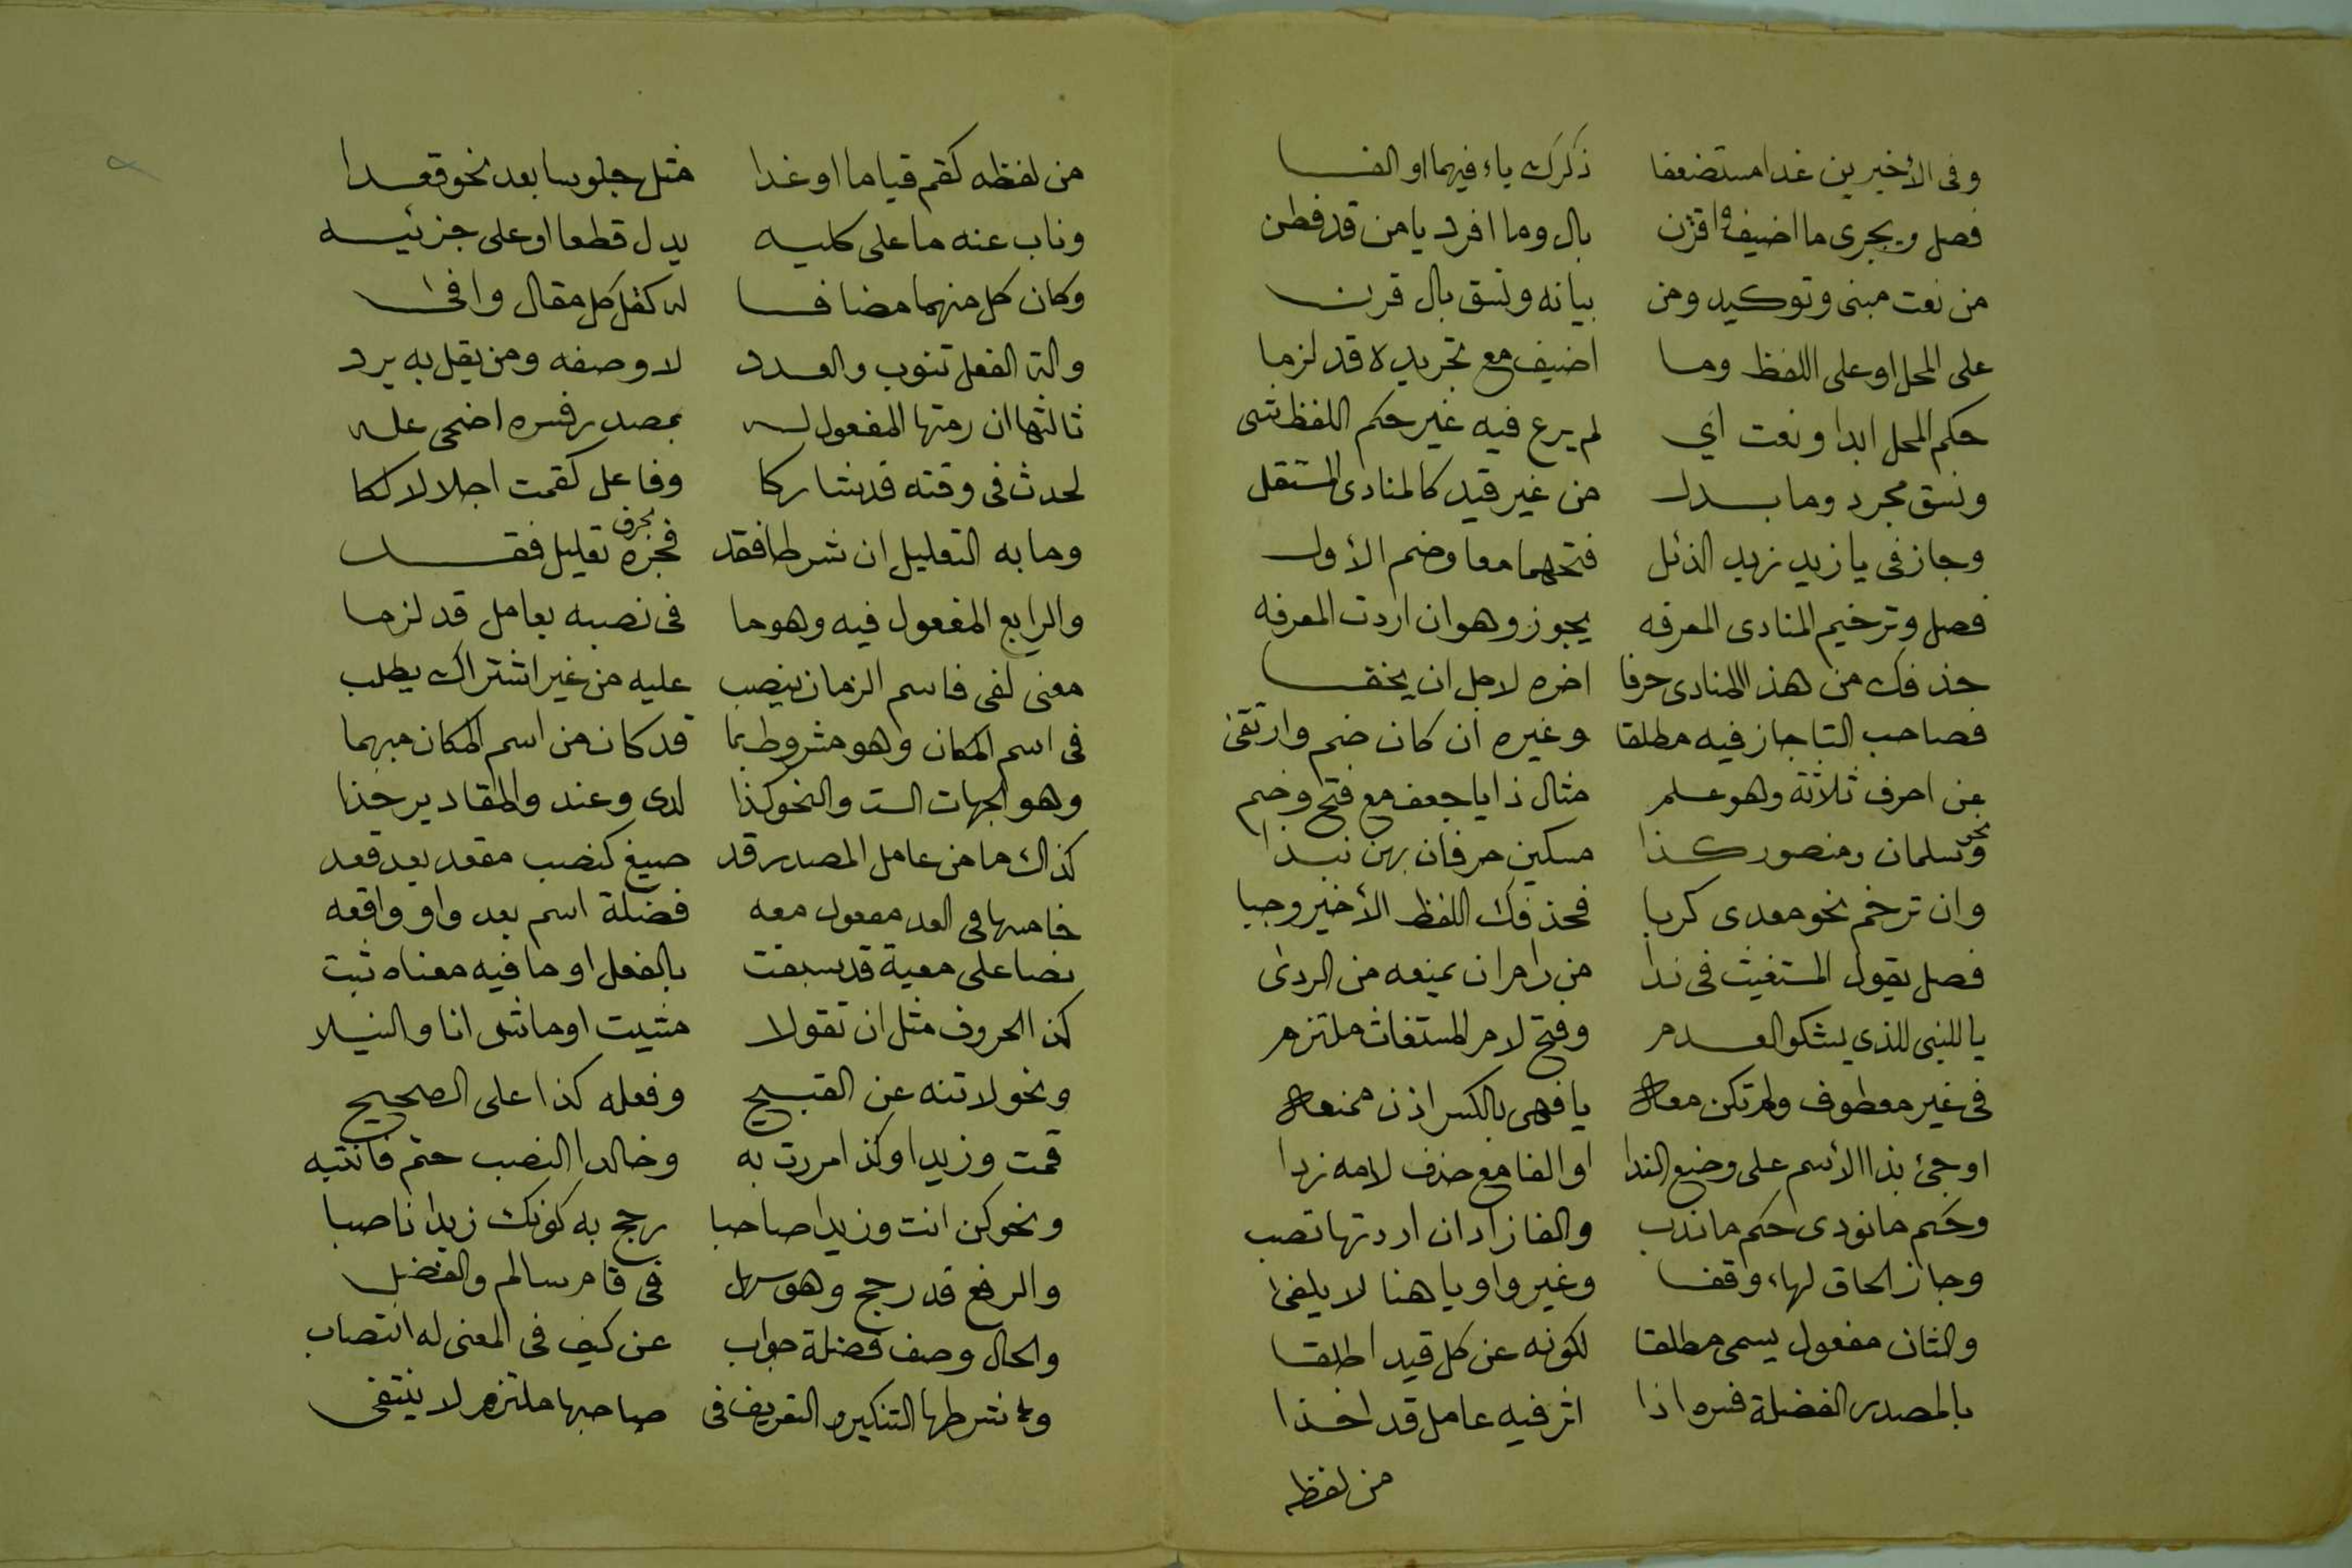 وفى الأخيرين غدا مستضعفا ذكرك ياء فيهما او الفا
فصل ويجرى ما اضيف واقترن بال وما افرد يا من قد فطن
من نعت مبنى وتوكيد ومن بيانه ونسق بال قرن
على المحل او على اللفظ وما اضيف مع تجريده قد لزما
حكم المحل ابدا ونعت اي لم يرع فيه غير حكم اللفظ شى
ونسق مجرد وما بدل من غير قيد كالمنادى المستقل
وجاز فى يا زيد زيد الذئل فتحهما معا وضم الأول
فصل وترخيم المنادى المعرفه يجوز وهو ان اردت المعرفه
حذفك من هذا المنادى حرفا اخره لاجل ان يخفا
فصاحب التا جاز فيه مطلقا وغيره ان كان ضم وارتقى
عن احرف ثلاثة وهو علم مثال ذا يا جعف مع فتح وضم
ونحو سلمان ومنصور كذا مسكين حرفان بهن نبذا
وان ترخم نحو معدى كربا فحذفك اللفظ الأخير وجبا
فصل يقول المستغيث فى ندا من رام ان يمنعه من الردى
يا للنبى للذي يشكو العدم وفتح لام المستغاث ملتزم
فى غير معطوف ولم تكن معه يا فهى بالكسر اذن ممنعه
او جئ بذا الأسم على وضع الندا او الفا مع حذف لامه زدا
وحكم ما نودى حكم ما ندب والفا زاد ان اردتها تصب
وجاز الحاق لهاء وقفا وغير واو يا هنا لا يلفى
والثان مفعول يسمى مطلقا لكونه عن كل قيد اطلقا
بالمصدر الفضلة فسره اذا اثر فيه عامل قد اخذا
من لفظه
من لفظه كقم قياما او غدا مثل جلوسا بعد نحو قعدا
وناب عنه ما على كليه يدل قطعا او على جزئيه
وكان كل منهما مضافا له كقل كل مقال وافى
والة الفعل تنوب والعدد لا وصفه ومن يقل به يرد
ثالثها ان رمتها المفعول له بمصدر فسره اضحى عله
لحدث فى وقته قد شاركا وفاعل كقمت اجلالا لكا
وما به التعليل ان شرطا فقد فجره بحرف تعليل فقد
والرابع المفعول فيه وهو ما فى نصبه بعامل قد لزما
معنى لفى فاسم الزمان ينصب عليه من غير اشتراك يطلب
فى اسم المكان وهو مشروط بما قد كان من اسم المكان مبهما
وهو الجهات الست والنحو كذا لدى وعند والمقادير خذا
كذاك ما من عامل المصدر قد صيغ كنصب مقعد بعد قعد
خامسها فى العد مفعول معه فضلة اسم بعد واو واقعه
نصا على معية قد سبقت بالفعل او ما فيه معناه ثبت
كذا الحروف مثل ان تقولا مشيت او ماش انا والنيلا
ونحو لا تنه عن القبيح وفعله كذا على الصحيح
قمت وزيدا وكذا مررت به وخالدا النصب حتم فانتبه
ونحو كن انت وزيدا صاحبا رجح به كونك زيدا ناصبا
والرفع قد رجح وهو سهل فى قام سالم والفضل
والحال وصف فضلة جواب عن كيف فى المعنى له انتصاب
وشرطها التنكير والتعريف فى صاحبها ملتزم لا ينتفى